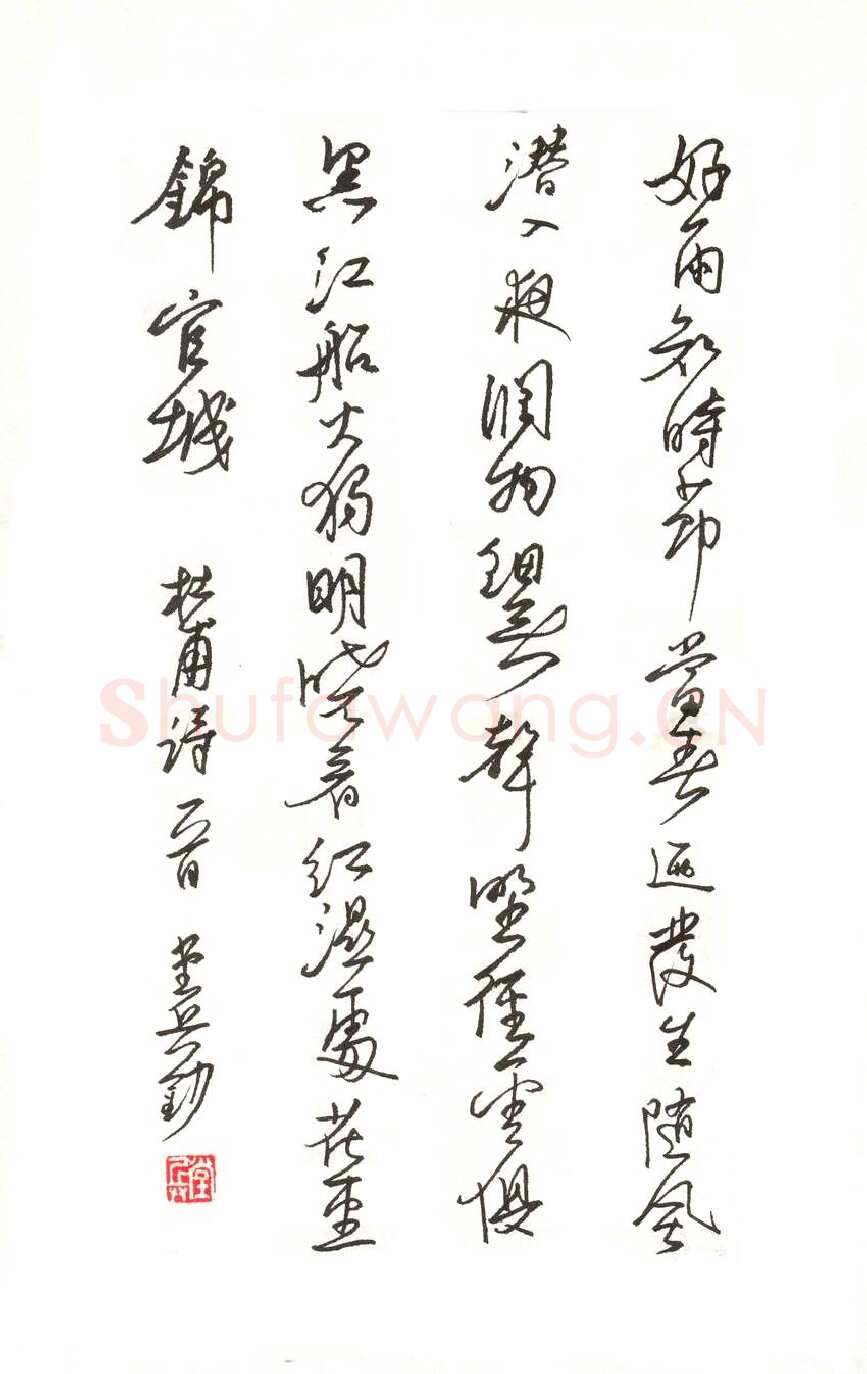 好雨知時節當春迺發生隨風
潜入夜潤物細無聲野徑雲俱
黑江船火獨明曉看紅濕處花重
錦官城 杜甫詩一首
Shufawang.CN